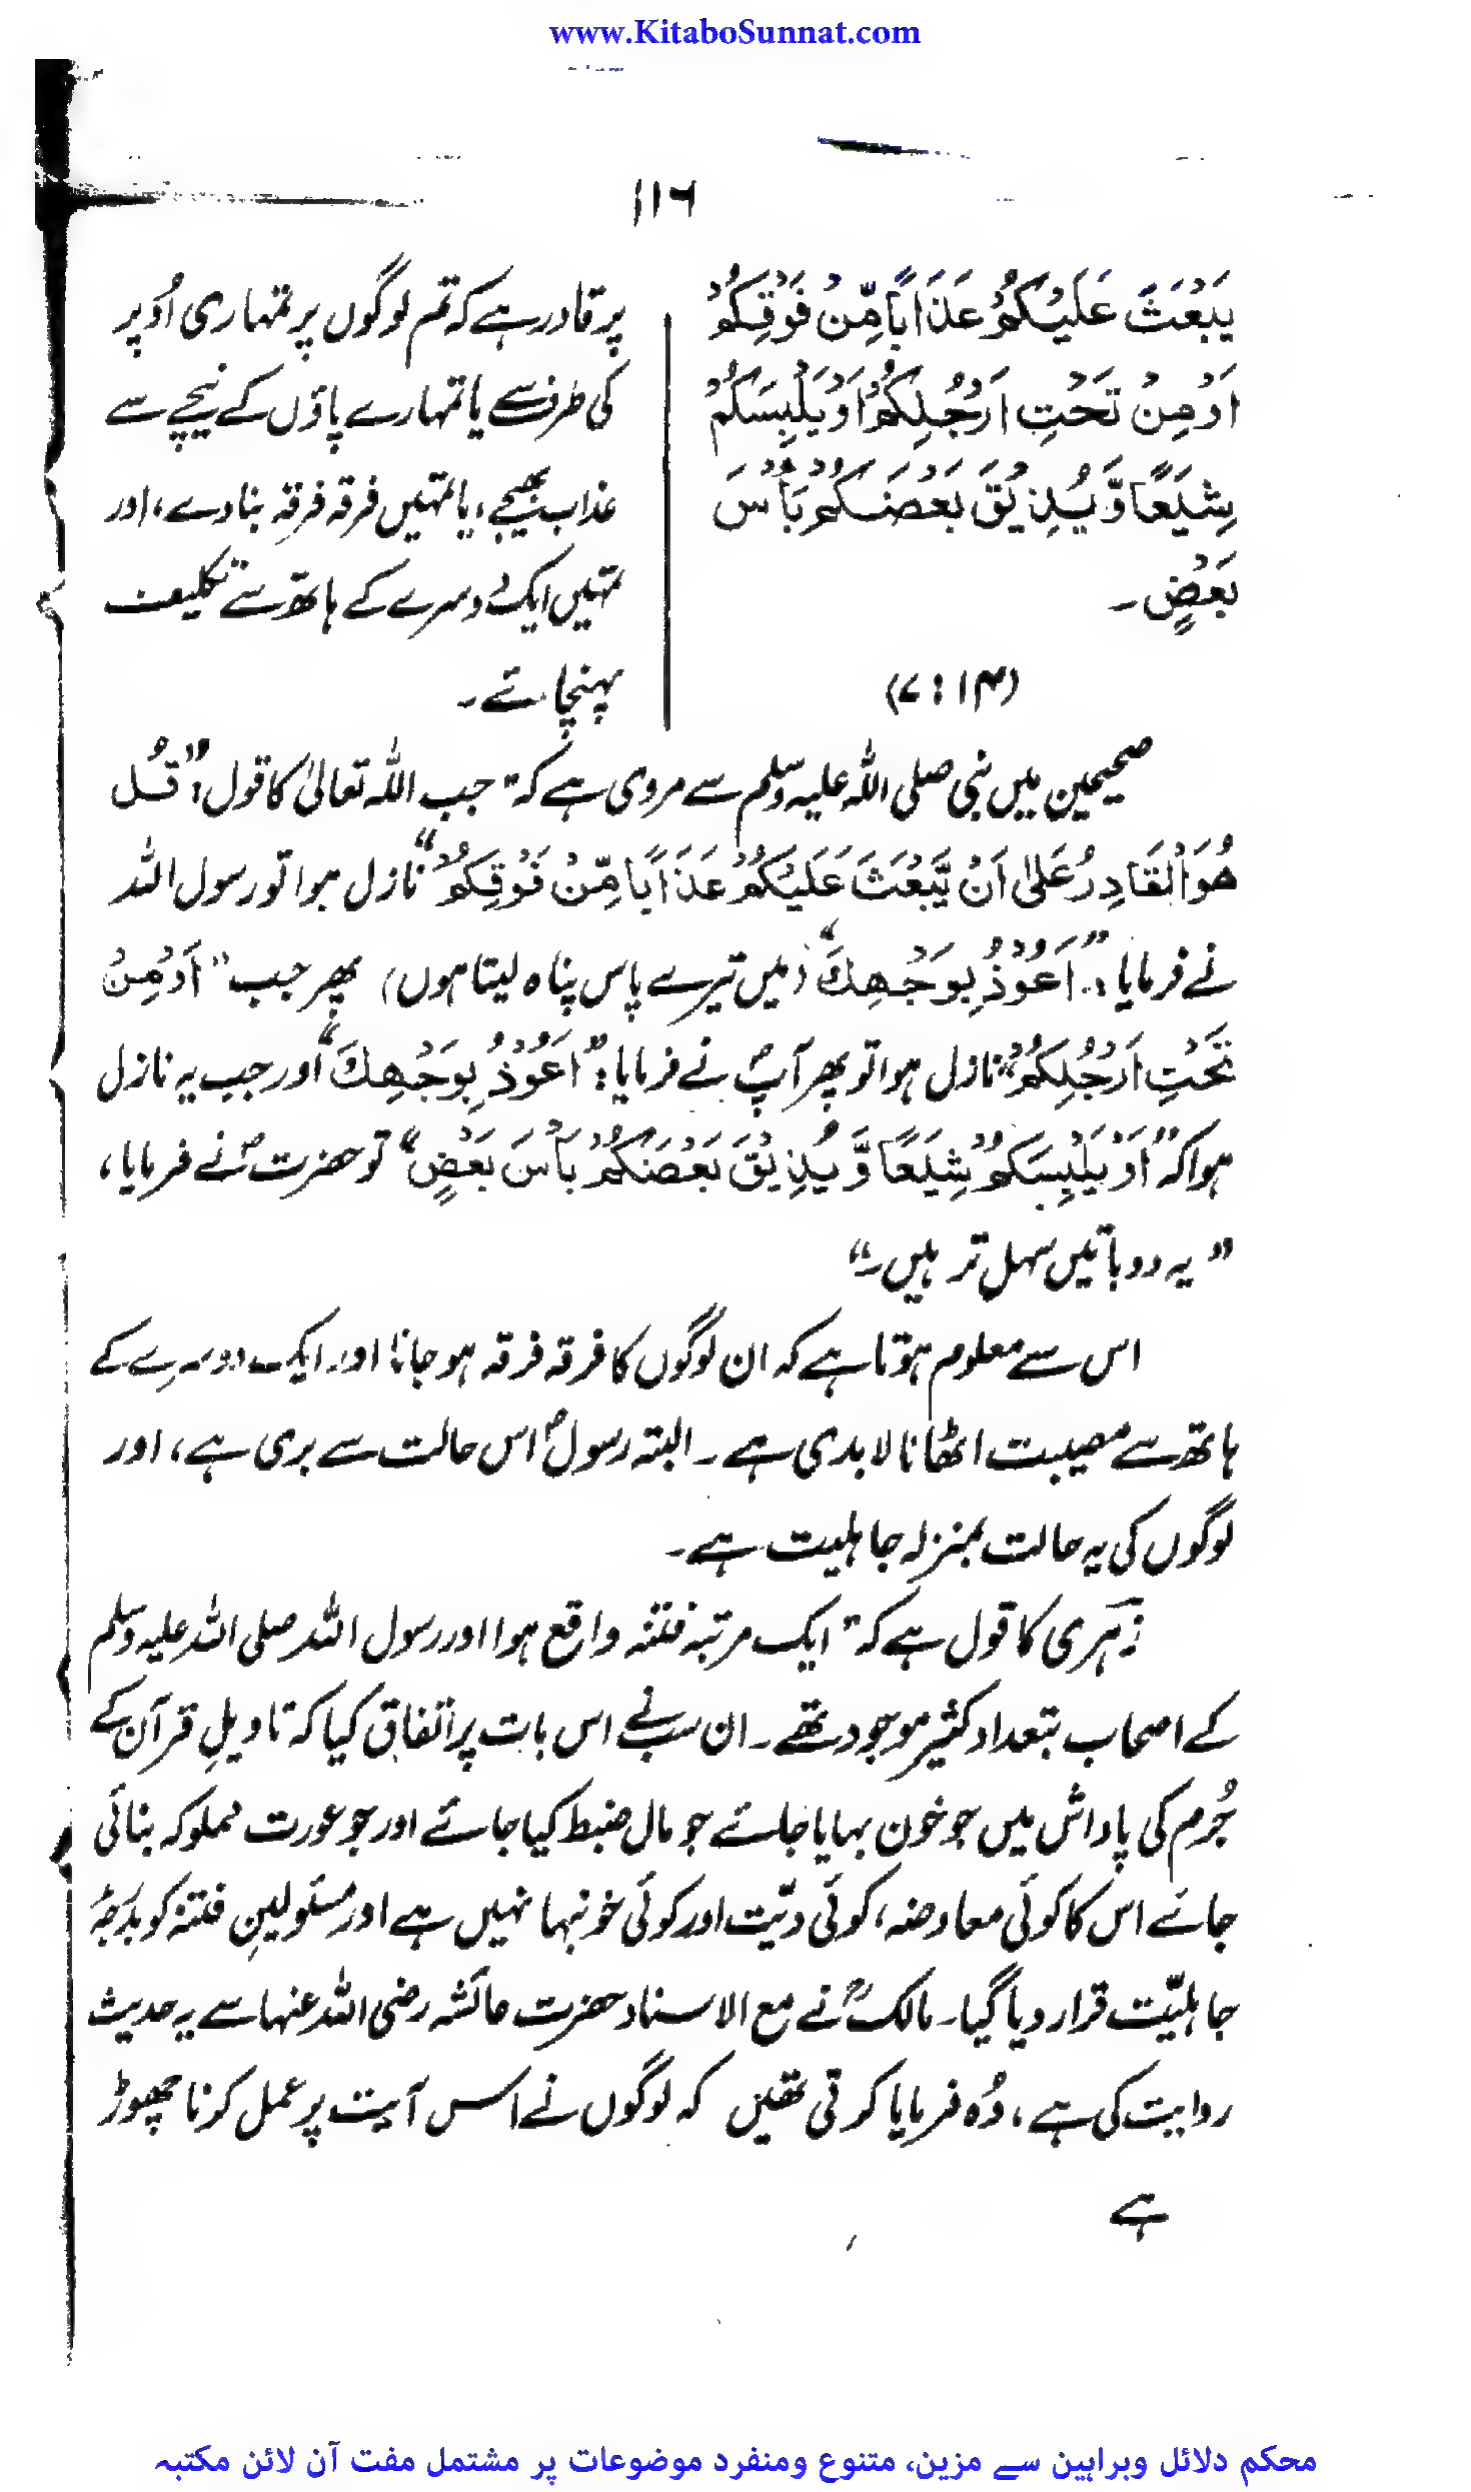 www.KitaboSunnat.com
۱۱۶
يَبْعَثَ عَلَيْكُمْ عَذَابًا مِّنْ فَوْقِكُمْ
اَوْ مِنْ تَحْتِ اَرْجُلِكُمْ اَوْ يَلْبِسَكُمْ
شِيَعًا وَّ يُذِيْقَ بَعْضَكُمْ بَاْسَ
بَعْضٍ ۔
(۷ : ۱۴)
پر قادر ہے کہ تم لوگوں پر تمہاری اُوپر
کی طرف سے یا تمہارے پاؤں کے نیچے سے
عذاب بھیجے، یا تمہیں فرقہ فرقہ بنا دے، اور
تمہیں ایک دوسرے کے ہاتھ سے تکلیف
پہنچائے ۔
صحیحین میں نبی صلی اللہ علیہ وسلم سے مروی ہے کہ " جب اللہ تعالیٰ کا قول : " قُلْ
هُوَ الْقَادِرُ عَلٰى اَنْ يَّبْعَثَ عَلَيْكُمْ عَذَابًا مِّنْ فَوْقِكُمْ " نازل ہوا تو رسول اللہ
نے فرمایا : " اَعُوْذُ بِوَجْهِكَ " (میں تیرے پاس پناہ لیتا ہوں) پھر جب " اَوْ مِنْ
تَحْتِ اَرْجُلِكُمْ " نازل ہوا تو پھر آپؐ نے فرمایا : " اَعُوْذُ بِوَجْهِكَ " اور جب یہ نازل
ہوا کہ " اَوْ يَلْبِسَكُمْ شِيَعًا وَّ يُذِيْقَ بَعْضَكُمْ بَاْسَ بَعْضٍ " تو حضرتؐ نے فرمایا ،
" یہ دو باتیں سہل تر ہیں ۔ "
اس سے معلوم ہوتا ہے کہ ان لوگوں کا فرقہ فرقہ ہو جانا اور ایک دوسرے کے
ہاتھ سے مصیبت اٹھانا لابدی ہے ۔ البتہ رسولؐ اس حالت سے بری ہے ، اور
لوگوں کی یہ حالت بمنزلہ جاہلیت ہے ۔
زہری کا قول ہے کہ " ایک مرتبہ فتنہ واقع ہوا اور رسول اللہ صلی اللہ علیہ وسلم
کے اصحاب بتعداد کثیر موجود تھے ۔ ان سب نے اس بات پر اتفاق کیا کہ تاویلِ قرآن کے
جُرم کی پاداش میں جو خون بہایا جائے جو مال ضبط کیا جائے اور جو عورت مملوکہ بنائی
جائے اس کا کوئی معاوضہ ، کوئی دیّت اور کوئی خونبہا نہیں ہے اور مسئولینِ فتنہ کو بدرجۂ
جاہلیّت قرار دیا گیا ۔ مالکؒ نے مع الاسناد حضرت عائشہ رضی اللہ عنہا سے یہ حدیث
روایت کی ہے ، وُہ فرمایا کرتی تھیں کہ لوگوں نے اس آیت پر عمل کرنا چھوڑ
ہے
محکم دلائل وبراہین سے مزین، متنوع ومنفرد موضوعات پر مشتمل مفت آن لائن مکتبہ